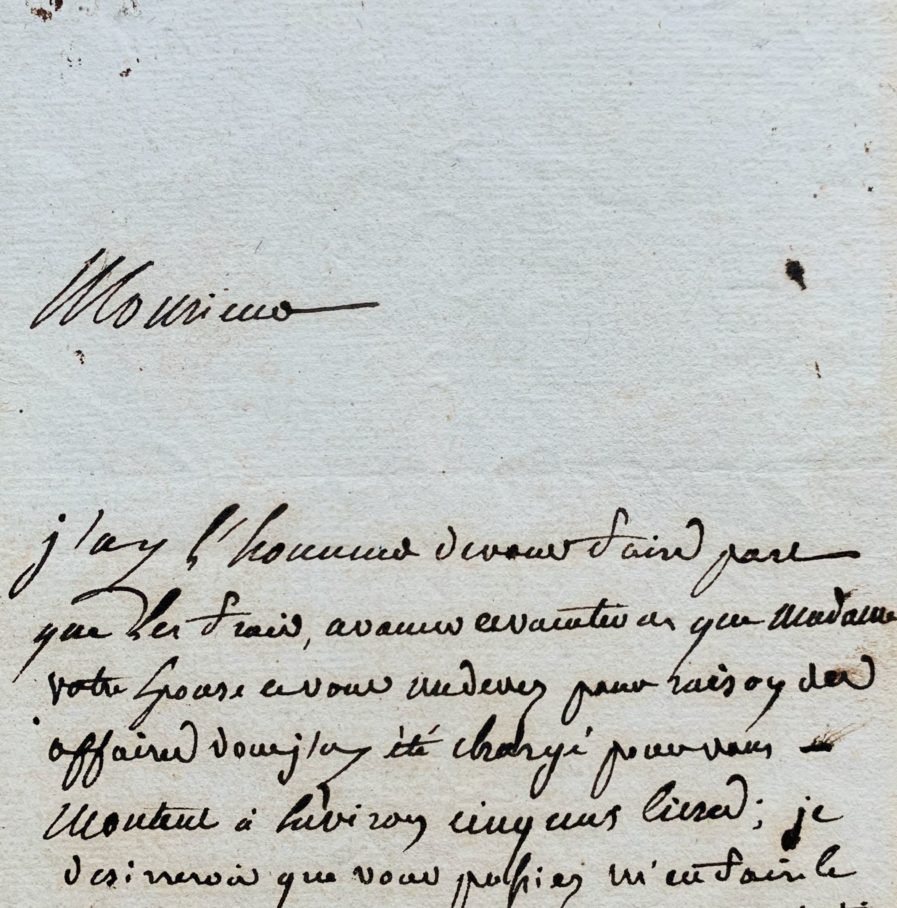 Monsieur
j'ay l'honneur de vous faire part
que les frais, avances et vacations que Madame
votre Epouse et vous me devez pour raison des
affaires dont j'ay été chargé pour vous
Montent à Environ cinq cens livres; je
desirerois que vous pussiez m'en faire le